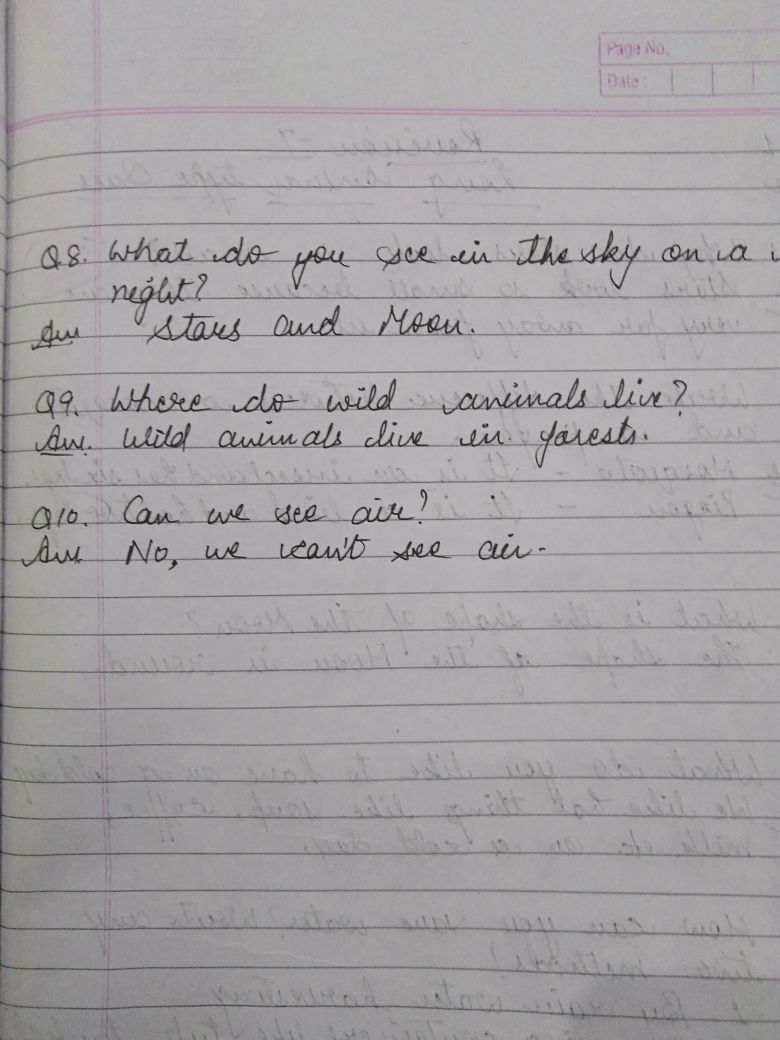 Page No.
Date:
Q8. What do you see in the sky on a
night?
Ans Stars and Moon.
Q9. Where do wild animals live?
Ans. Wild animals live in forests.
Q10. Can we see air?
Ans No, we can't see air.